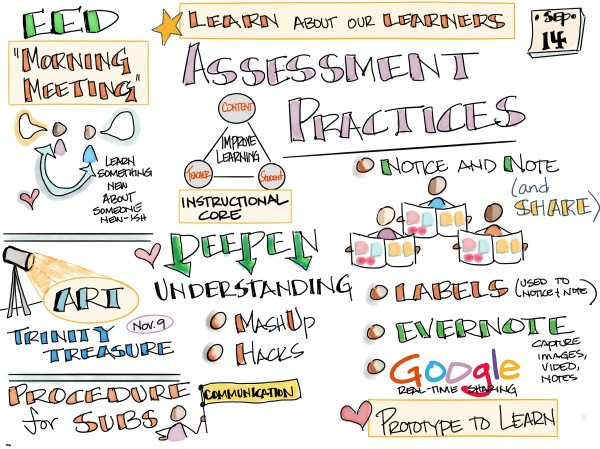 EED
"MORNING
MEETING"
LEARN
SOMETHING
NEW
ABOUT
SOMEONE
NEW-ISH
ART
TRINITY
TREASURE
NOV. 9
PROCEDURE
for SUBS
COMMUNICATION
LEARN ABOUT OUR LEARNERS
SEP
14
ASSESSMENT
PRACTICES
CONTENT
IMPROVE
LEARNING
TEACHER
STUDENT
INSTRUCTIONAL
CORE
DEEPEN
UNDERSTANDING
MASHUP
HACKS
NOTICE AND NOTE
(and
SHARE)
LABELS (USED TO
NOTICE + NOTE)
EVERNOTE
CAPTURE
IMAGES,
VIDEO,
NOTES
Google
REAL-TIME SHARING
PROTOTYPE TO LEARN